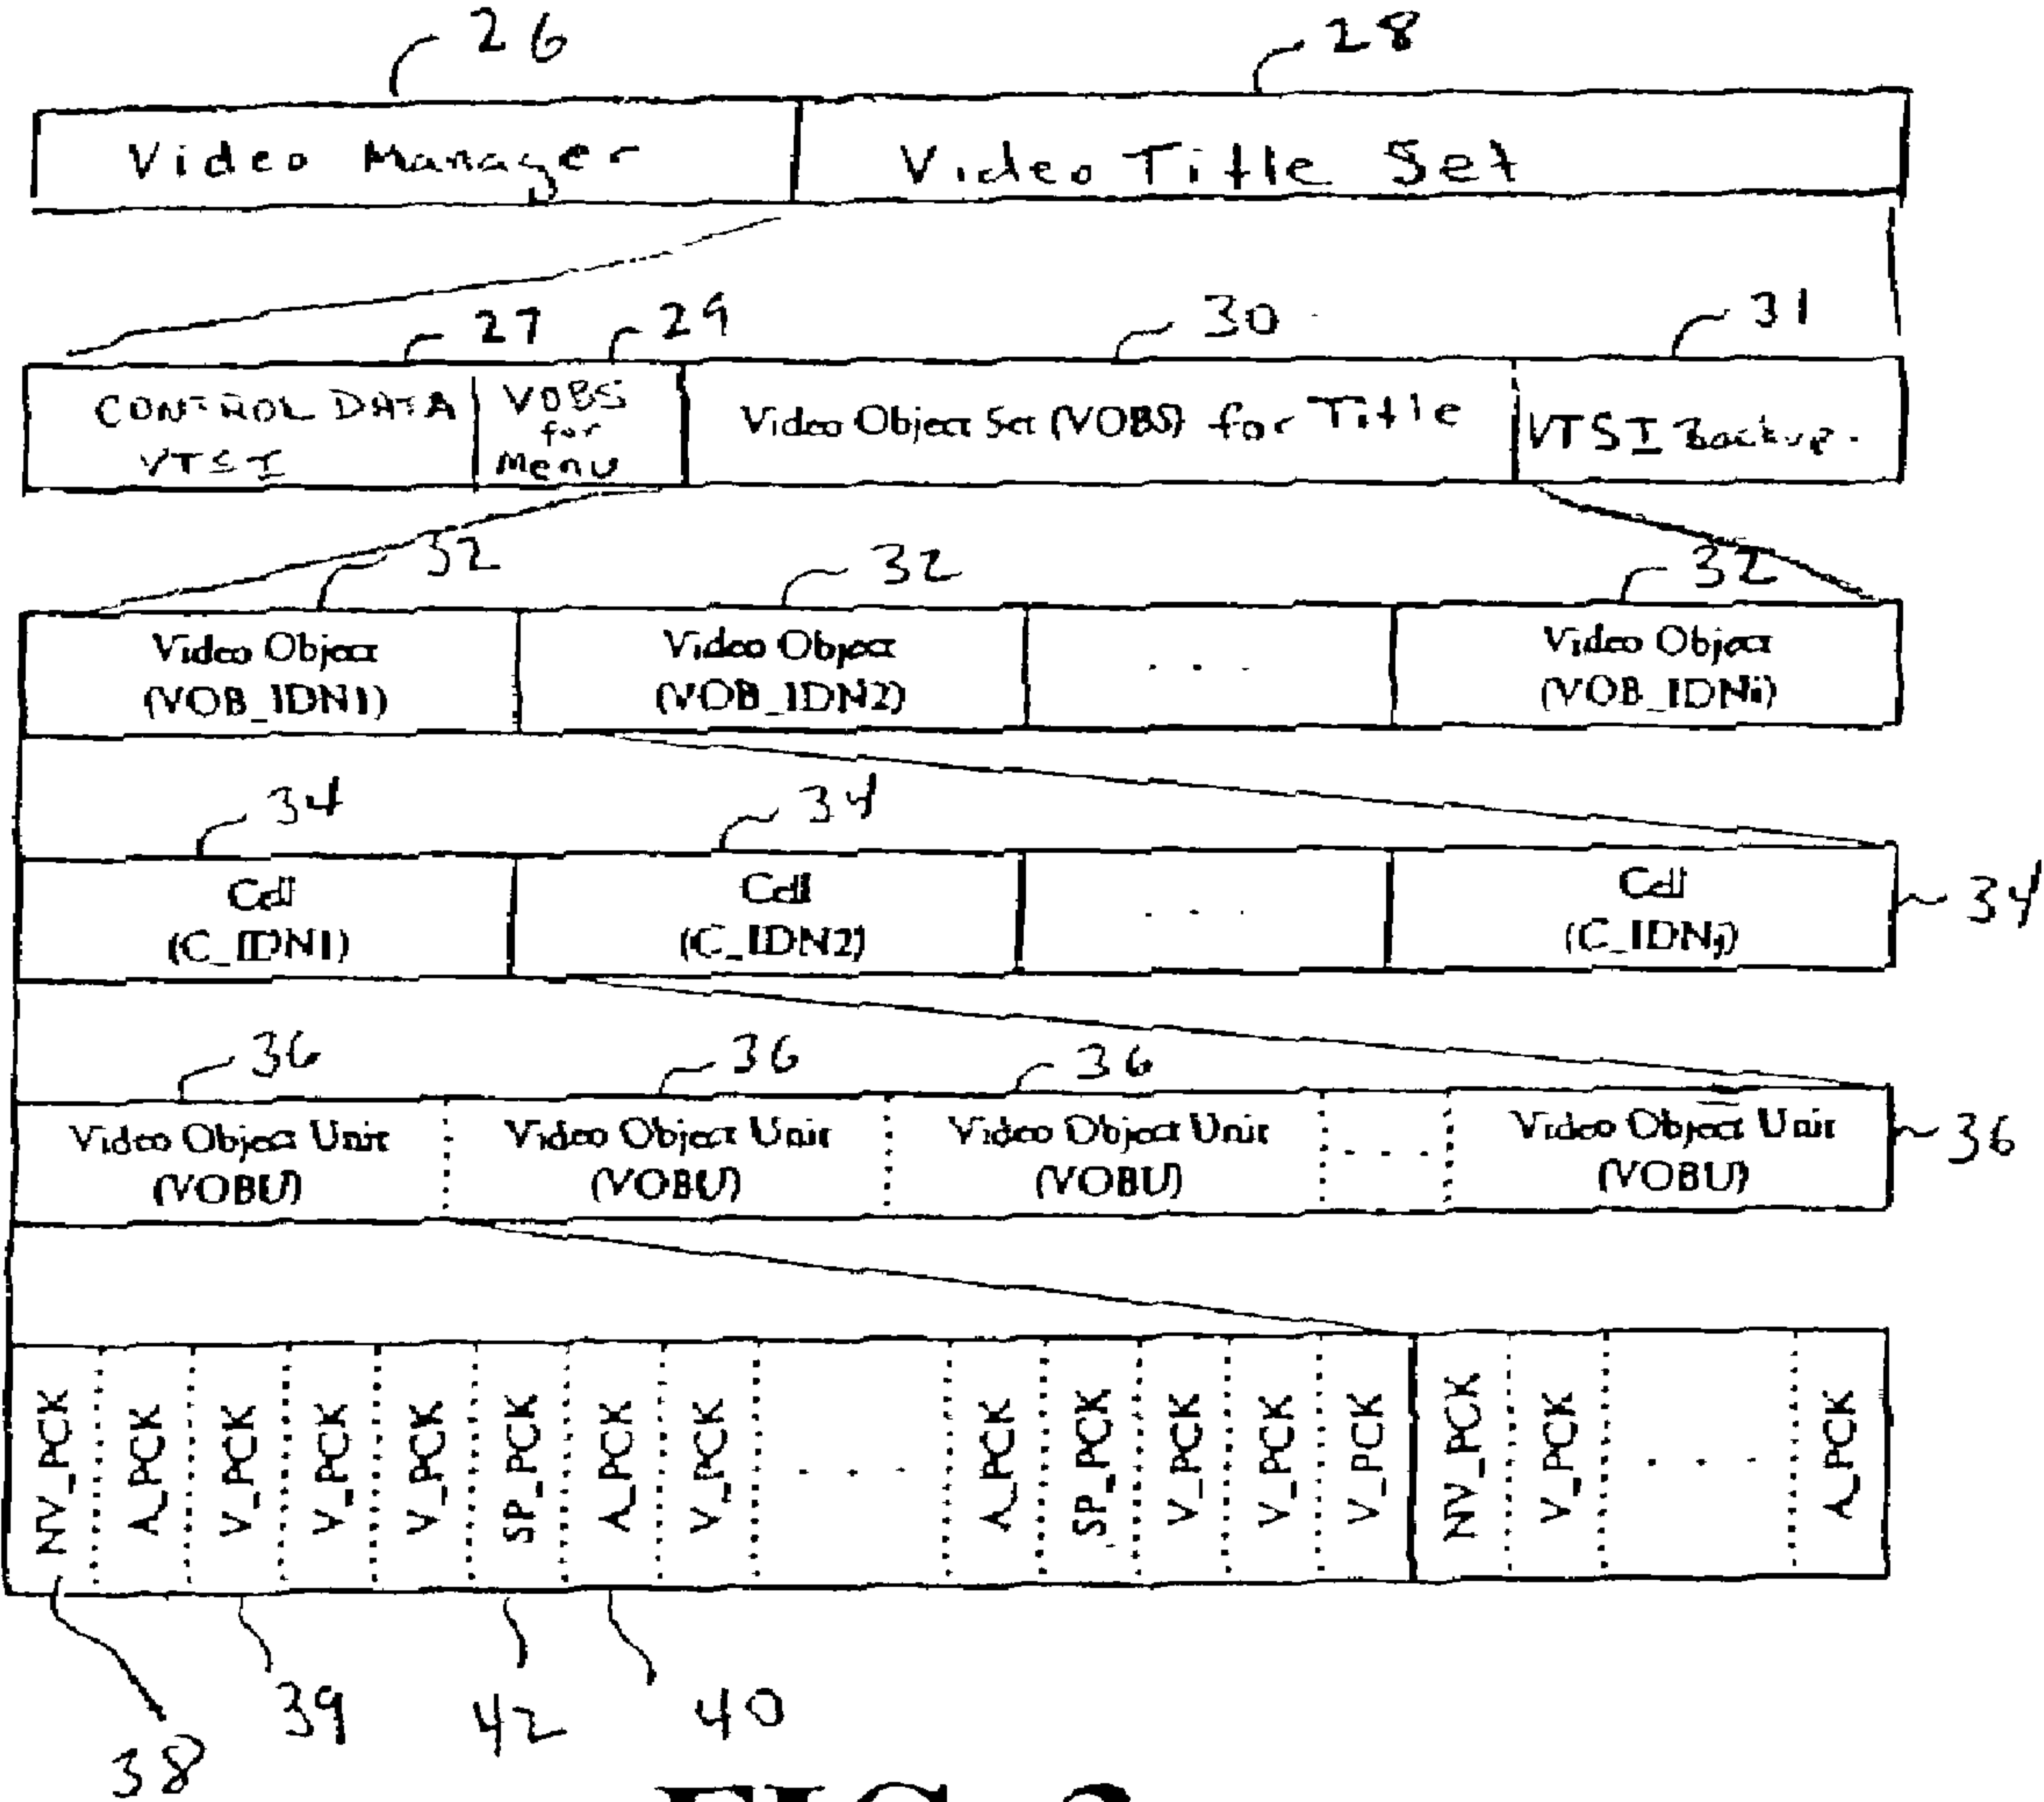 26 28
Video Manager Video Title Set
27 29 30 31
CONTROL DATA VTSI VOBS for Menu Video Object Set (VOBS) for Title VTSI Backup.
32 32 32
Video Object Video Object Video Object
(VOB_IDN1) (VOB_IDN2) . . . (VOB_IDNi)
34 34
Cell Cell Cell 34
(C_IDN1) (C_IDN2) . . . (C_IDNj)
36 36 36
Video Object Unit Video Object Unit Video Object Unit Video Object Unit 36
(VOBU) (VOBU) (VOBU) . . . . (VOBU)
NV_PCK A_PCK V_PCK V_PCK V_PCK SP_PCK A_PCK V_PCK . . . . A_PCK SP_PCK V_PCK V_PCK V_PCK NV_PCK V_PCK . . . . A_PCK
39 42 40
38